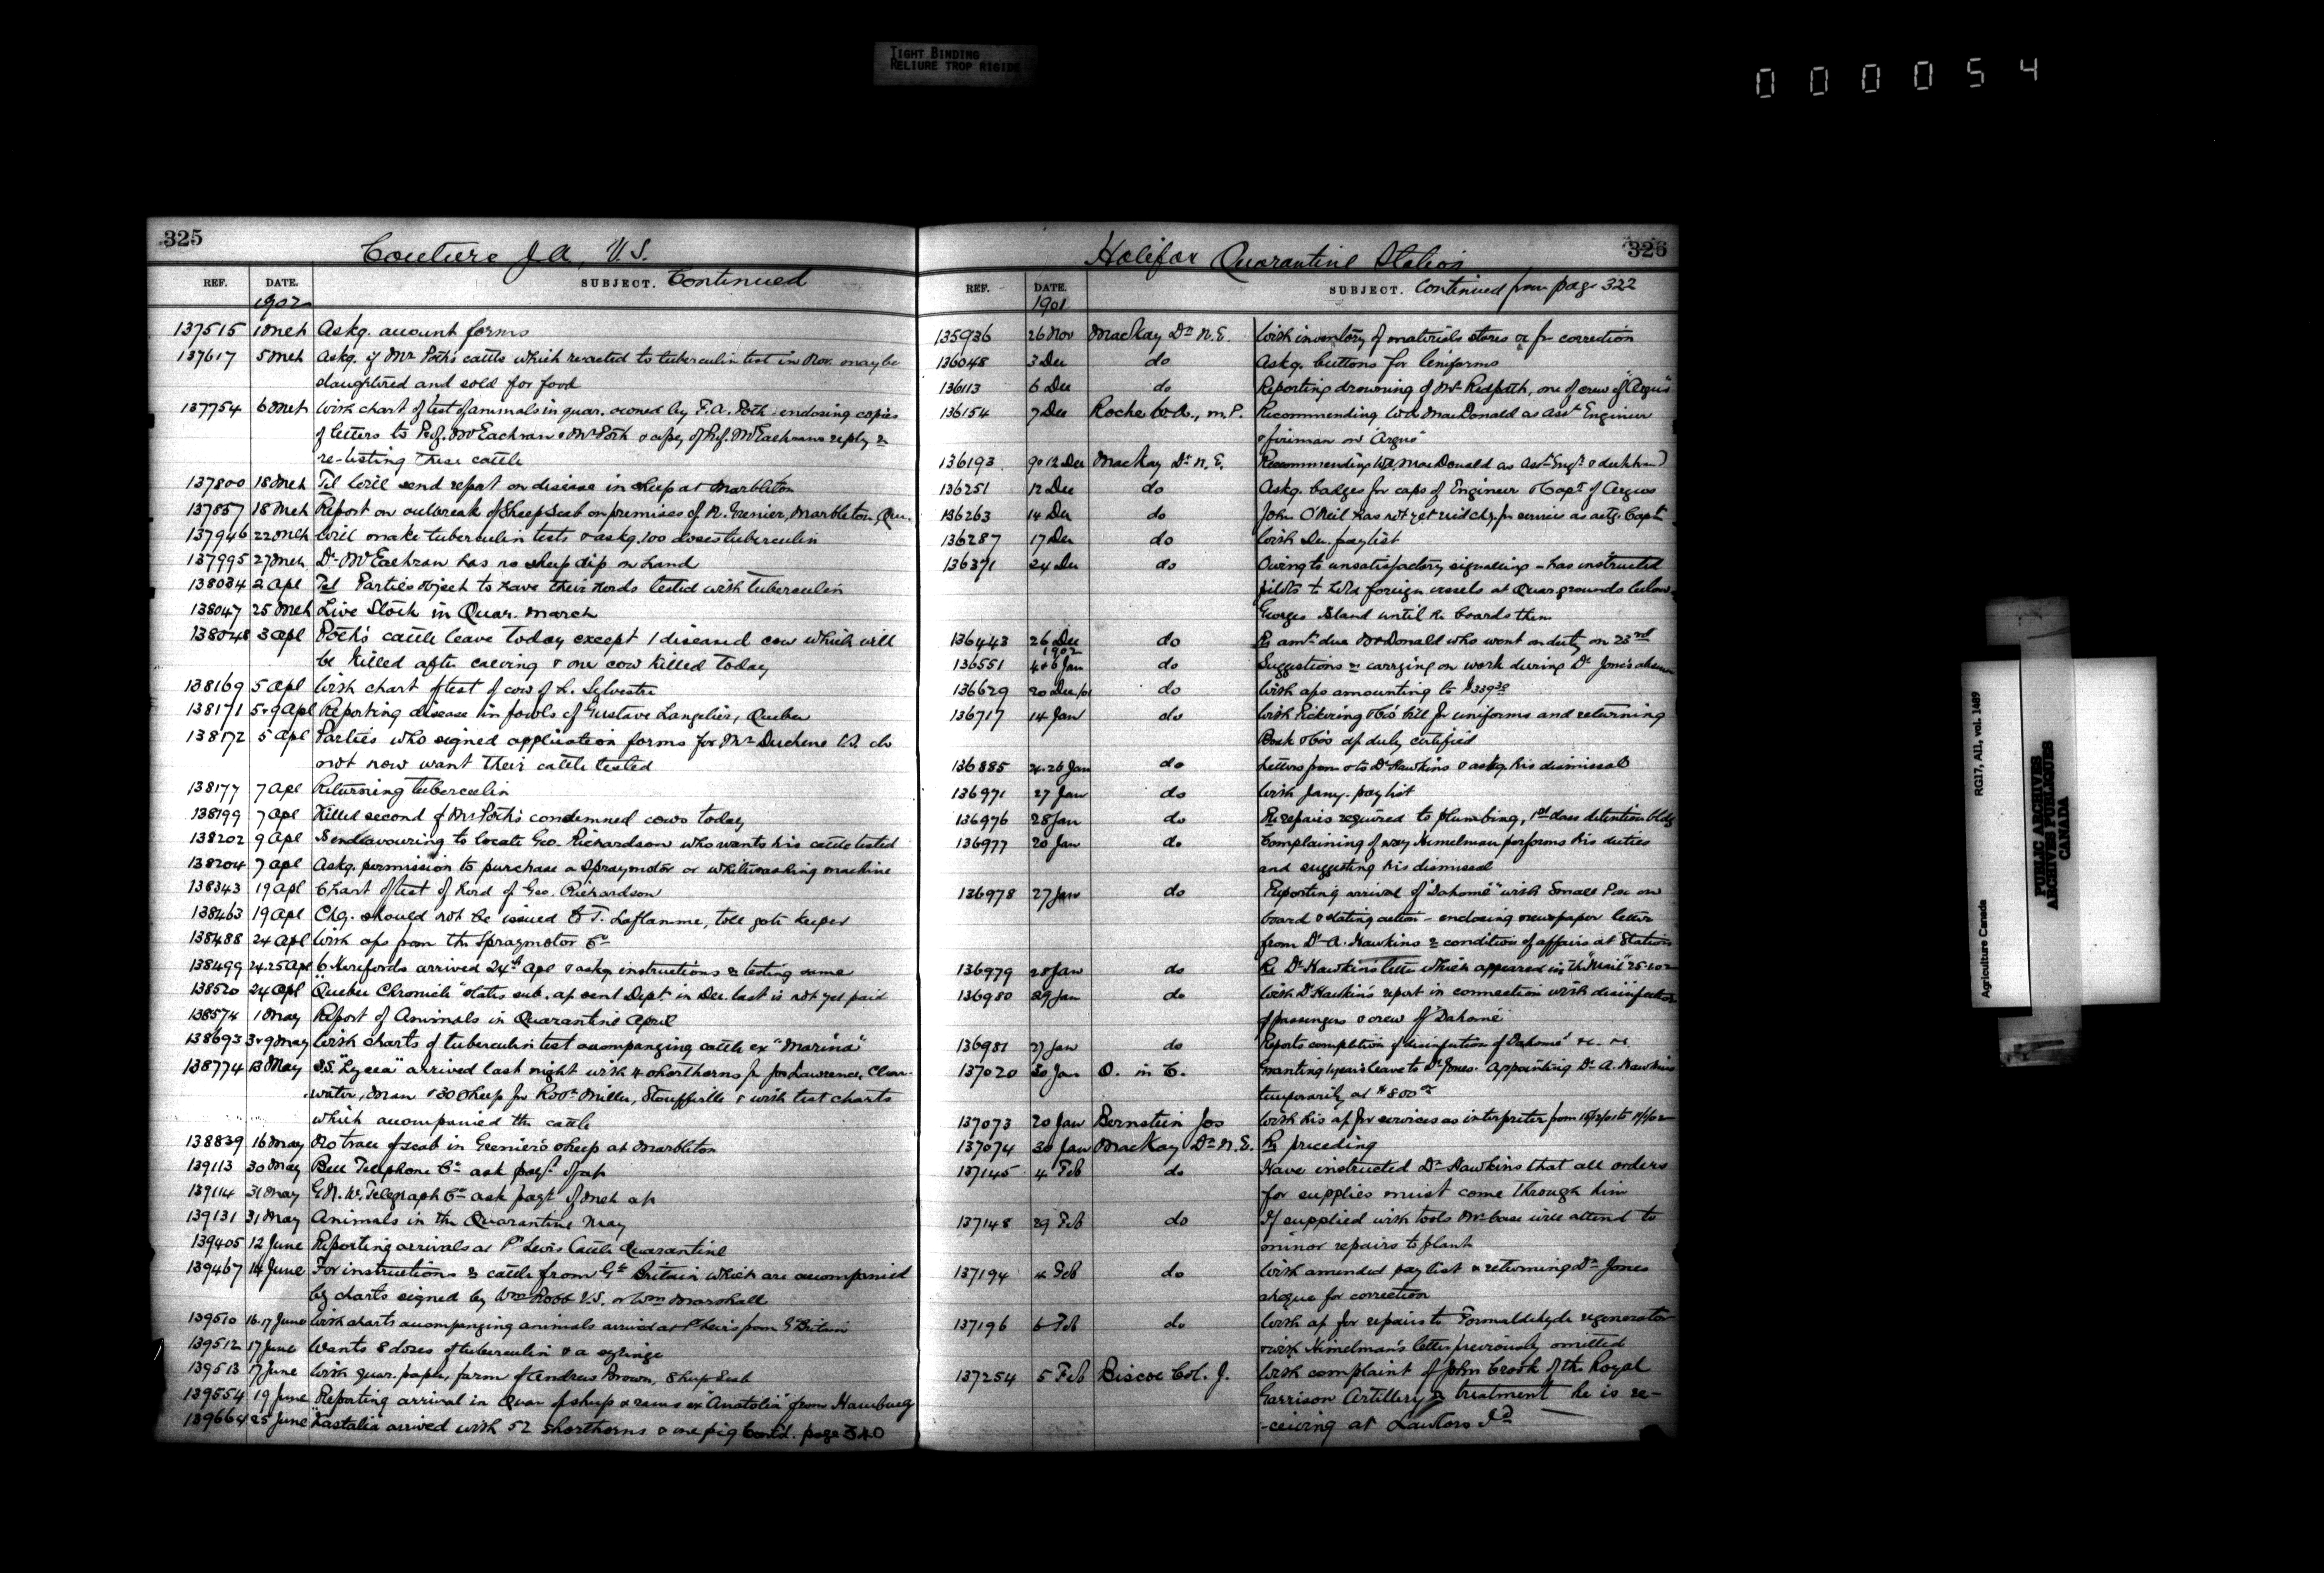 TIGHT BINDING
RELIURE TROP RIGIDE
000054
325
Couture J.A., V.S.
REF. DATE. SUBJECT. Continued
1902
137515 1 Mch Askg. account forms
137617 5 Mch Askg. if Mr. Poth's cattle which reacted to tuberculin test in Nov. may be
slaughtered and sold for food
137754 6 Mch With chart of test of animals in quar. owned by F.A. Poth enclosing copies
of letters to Prof. McEachran & Mr Poth & copy of Prof. McEachran's reply re
re-testing these cattle
137800 18 Mch Tel Will send report on disease in sheep at Marbleton
137857 18 Mch Report on outbreak of Sheep Scab on premises of N. Grenier, Marbleton, Qu.
137946 22 Mch Will make tuberculin tests & askg. 100 doses tuberculin
137995 27 Mch Dr McEachran has no sheep dip on hand
138034 2 Apl Tel Parties object to have their herds tested with tuberculin
138047 25 Mch Live Stock in Quar. March
138048 3 Apl Poth's cattle leave today except 1 diseased cow which will
be killed after calving & one cow killed today
138169 5 Apl With chart of test of cow of L. Sylvestre
138171 5 & 9 Apl Reporting disease in fowls of Gustave Langelier, Quebec
138172 5 Apl Parties who signed application forms for Mr Duchene V.S. do
not now want their cattle tested
138177 7 Apl Returning tuberculin
138199 7 Apl Killed second of Mr Poth's condemned cows today
138202 9 Apl Is endeavouring to locate Geo. Richardson who wants his cattle tested
138204 7 Apl Askg. permission to purchase a Spraymotor or whitewashing machine
138343 19 Apl Chart of test of herd of Geo. Richardson
138463 19 Apl Chq. should not be issued to T. Laflamme, toll gate keeper
138488 24 Apl With a/cs from the Spraymotor Co
138499 24.25 Apl 6 Herefords arrived 24th Apl & askg. instructions re testing same
138520 24 Apl "Quebec Chronicle" states sub. a/c sent Dept in Dec. last is not yet paid
138574 1 May Report of Animals in Quarantine April
138693 3 & 9 May With charts of tuberculin test accompanying cattle ex "Marina"
138774 13 May S.S. "Lycia" arrived last night with 4 shorthorns for Jos Lawrence, Clear-
water, Man & 30 sheep for Robt Miller, Stouffville & with test charts
which accompanied the cattle
138839 16 May No trace of scab in Grenier's sheep at Marbleton
139113 30 May Bell Telephone Co ask payt of a/c
139114 31 May G.N.W. Telegraph Co ask payt of Mch a/c
139131 31 May Animals in the Quarantine May
139405 12 June Reporting arrivals at Pt Levis Cattle Quarantine
139467 14 June For instructions re cattle from Gt Britain which are accompanied
by charts signed by Wm Robb V.S. or Wm Marshall
139510 16.17 June With charts accompanying animals arrived at Pt Levis from Gt Britain
139512 17 June Wants 8 doses of tuberculin & a syringe
139513 17 June With quar. paper, farm of Andrew Brown, Sheep Scab
139554 19 June Reporting arrival in Quar of sheep & rams ex "Anatolia" from Hamburg
139664 25 June "Kastalia" arrived with 52 Shorthorns & one pig Contd. page 340
326
Halifax Quarantine Station
REF. DATE. SUBJECT. Continued from page 322
1901
135936 26 Nov MacKay Dr N.E. With inventory of materials stores &c for correction
136048 3 Dec do Askg. buttons for Uniforms
136113 6 Dec do Reporting drowning of Mr Redpath, one of crew of "Argus"
136154 7 Dec Roche W., M.P. Recommending Wd. MacDonald as Asst Engineer
& fireman on "Argus"
136193 9 & 12 Dec MacKay Dr N.E. Recommending Wd. MacDonald as Asst Engr &
136251 12 Dec do Askg. badges for caps of Engineer & Capt of Argus
136263 14 Dec do John O'Neil has not yet recd chq. for services as actg. Captn
136287 17 Dec do With Dec. paylist
136371 24 Dec do Owing to unsatisfactory signalling - has instructed
pilots to hold foreign vessels at Quar. grounds below
Georges Island until he boards them
136443 26 Dec do Re amt due McDonald who went on duty on 23rd
1902
136551 4 & 6 Jan do Suggestions re carrying on work during Dr Jones absence
136629 20 Dec/01 do With a/cs amounting to $339.30
136717 14 Jan do With Pickering & Co's bill for uniforms and returning
Book & Co's a/c duly certified
136885 24.26 Jan do Letters from & to Dr Hawkins & askg. his dismissal
136971 27 Jan do With Jany. paylist
136976 28 Jan do Re repairs required to plumbing, 1st class detention bldg
136977 20 Jan do Complaining of way Himelman performs his duties
and suggesting his dismissal
136978 27 Jan do Reporting arrival of "Dahome" with Small Pox on
board & stating action - enclosing newspaper letter
from Dr A. Hawkins re condition of affairs at Station
136979 28 Jan do Re Dr Hawkins letter which appeared in the "Mail" 25.1.02
136980 29 Jan do With Dr Hawkin's report in connection with disinfection
of passengers & crew of "Dahome"
136981 27 Jan do Reports completion of disinfection of "Dahome" &c. &c.
137020 30 Jan O. in C. Granting 1 years leave to Dr Jones. Appointing Dr A. Hawkins
temporarily at $800.00
137073 20 Jan Bernstein Jos With his a/c for services as interpreter from 18/12/01 to 11/1/02
137074 30 Jan MacKay Dr N.E. Re preceding
137145 4 Feb do Have instructed Dr Hawkins that all orders
for supplies must come through him
137148 29 Feb do If supplied with tools will attend to
minor repairs to plant
137194 4 Feb do With amended pay list & returning Dr Jones
cheque for correction
137196 6 Feb do With a/c for repairs to Formaldehyde regenerator
& with Himelman's letter previously omitted
137254 5 Feb Biscoe Col. J. With complaint of John Crook of the Royal
Garrison Artillery re treatment he is re-
-ceiving at Lawlors Id
RG17, AII, vol. 1489
Agriculture Canada
PUBLIC ARCHIVES
ARCHIVES PUBLIQUES
CANADA